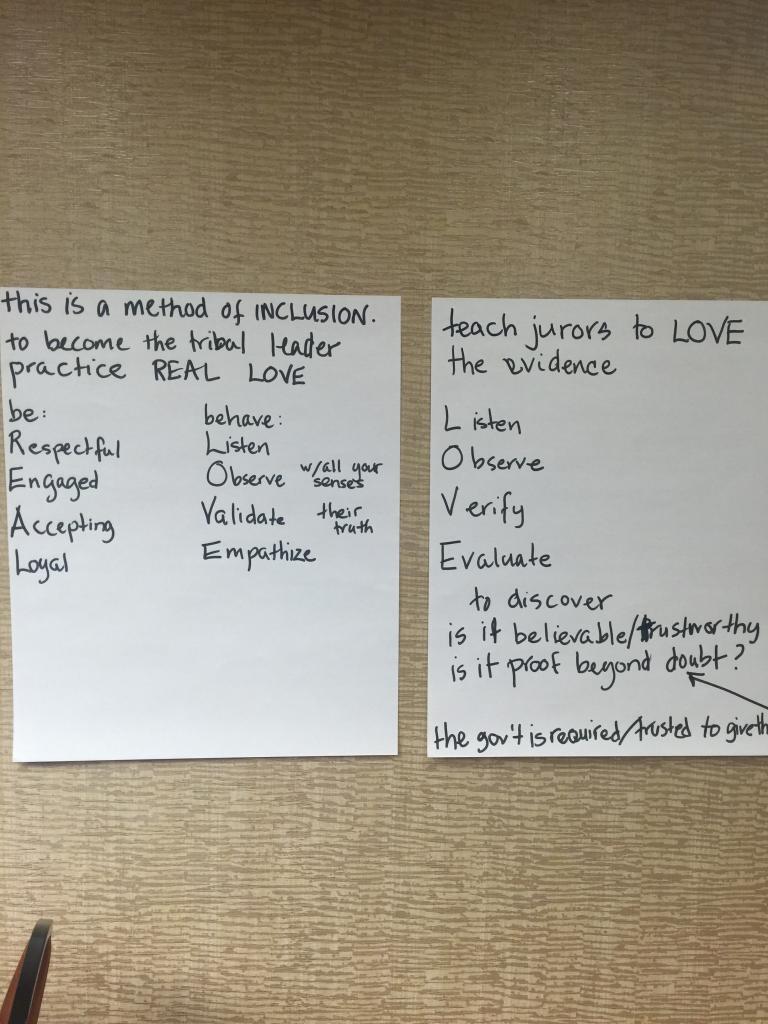 this is a method of INCLUSION.
to become the tribal leader
practice REAL LOVE
be:
Respectful
Engaged
Accepting
Loyal
behave:
Listen
Observe w/all your senses
Validate their truth
Empathize
teach jurors to LOVE
the evidence
Listen
Observe
Verify
Evaluate
to discover
is it believable/trustworthy
is it proof beyond doubt?
the gov't is required/trusted to give